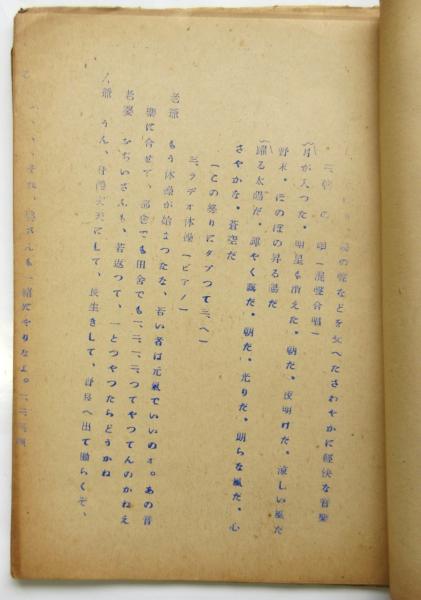 鶏の聲などを交へたさわやかに軽快な音樂
二、朝の唄(混聲合唱)
月が入つた。明星も消えた。朝だ。夜明けだ。涼しい風だ
野末。ほのぼの昇る陽だ
踊る太陽だ。輝やく露だ。朝だ。光りだ。朗らな風だ。心
さやかな。蒼空だ
(この終りにダブつて三、へ)
三、ラヂオ体操(ピアノ)
老爺 もう体操が始まつたな、若い者は元氣でいいのオ。あの音
樂に合せて、都会でも田舎でも一、二、三、つてやつてんのかねえ
老婆 おぢいさんも、若返つて、一とつやつたらどうかね
老爺 うん、 にして、長生きして、野良へ出て働らくぞ、
さんも一緒にやりなよ。一、二、三、